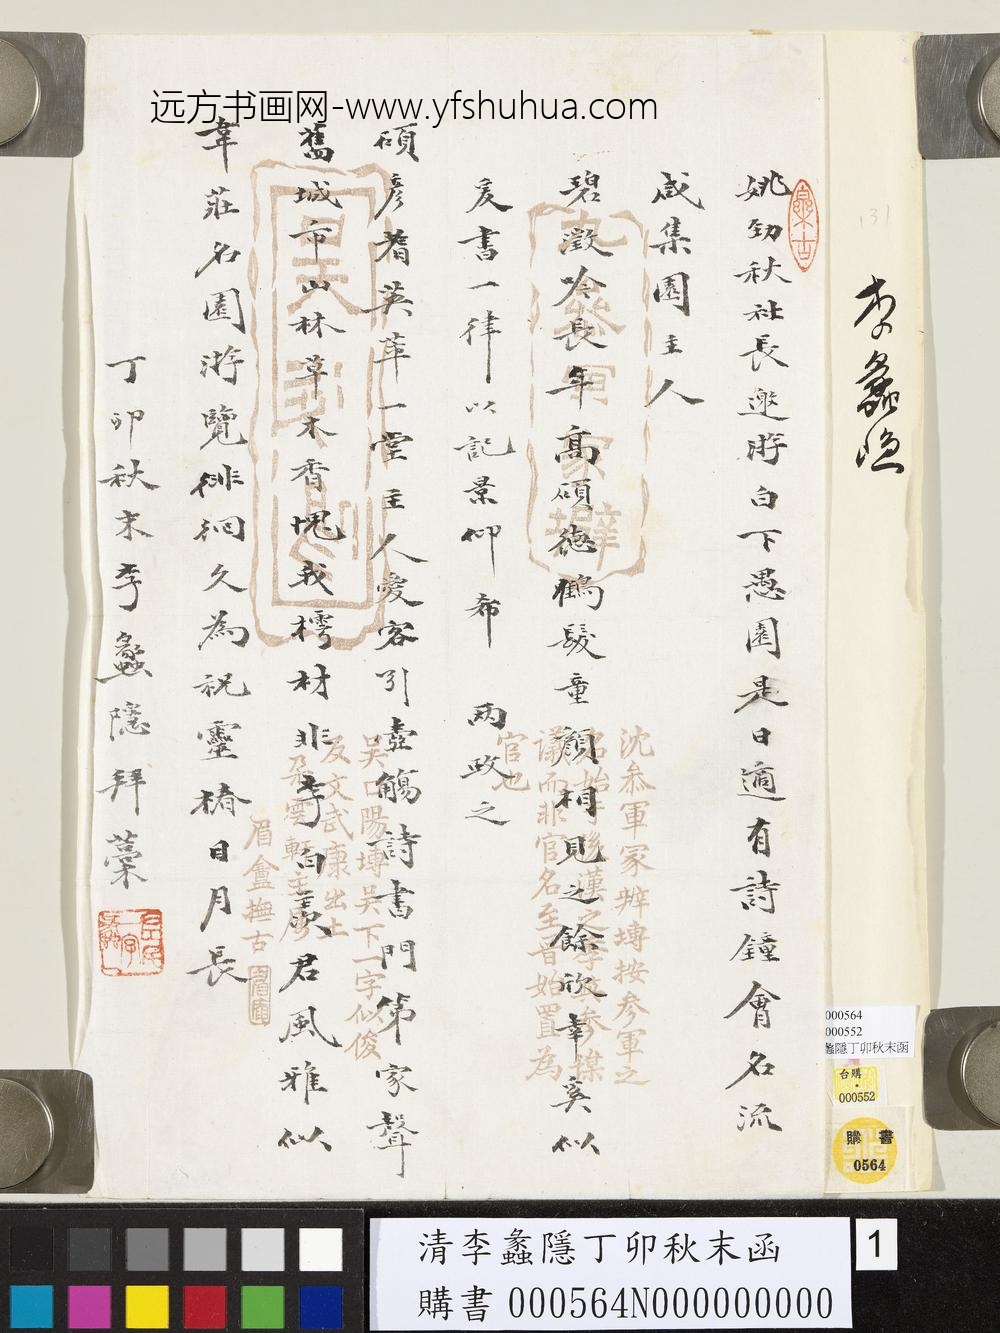 远方书画网-www.yfshuhua.com
131
李蠡隱
姚劲秋社長邀游白下愚園是日適有詩鐘會名流
咸集園主人
碧澂冷長年高碩德鶴髮童顏相見之餘欣幸奚似
爰書一律以記景仰希 兩政之
碩彦耆英萃一堂主人愛客引壺觴詩書門第家聲
舊城市山林草木香愧我樗材非李白羨君風雅似
韋莊名園游覽徘徊久為祝靈椿日月長
丁卯秋末李蠡隱拜藁
沈叅軍冢辨塼按参軍之
議而非官名至晋始置為
官也
吴下一字似俊
及文武康出土
朵雲軒主
眉盦撫古
000564
000552
蠡隱丁卯秋末函
台購
000552
購書
0564
清李蠡隱丁卯秋末函
購書 000564N000000000
1